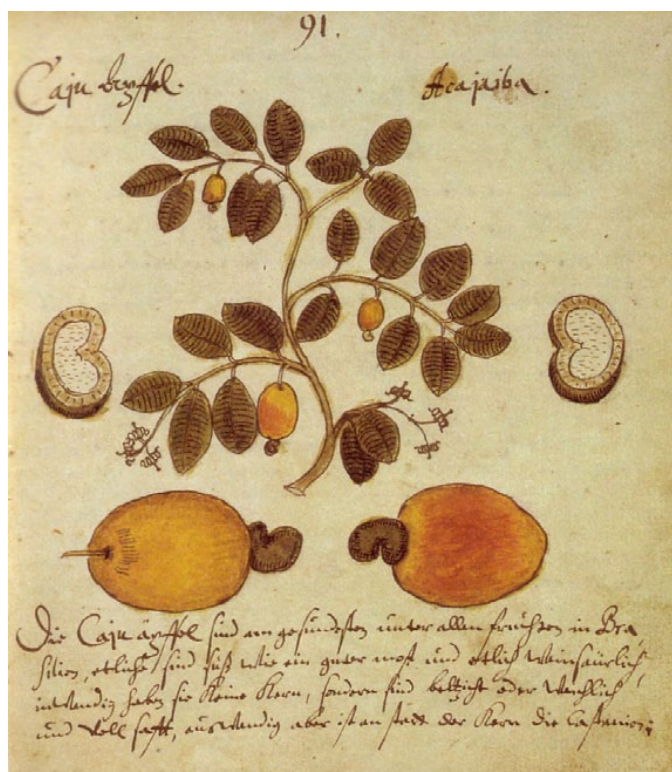 91.
Caju äpffel. Acajaiba.
Die Caju äpffel sind am gesündesten unter allen früchten in Bra,
silien, etliche sind süß wie ein guter most und etlich weinsäurlich,
inwendig haben sie Keine Kern, sondern sind oder weichlich
und voll safft, auswendig aber ist an statt der Kern die Castanien;